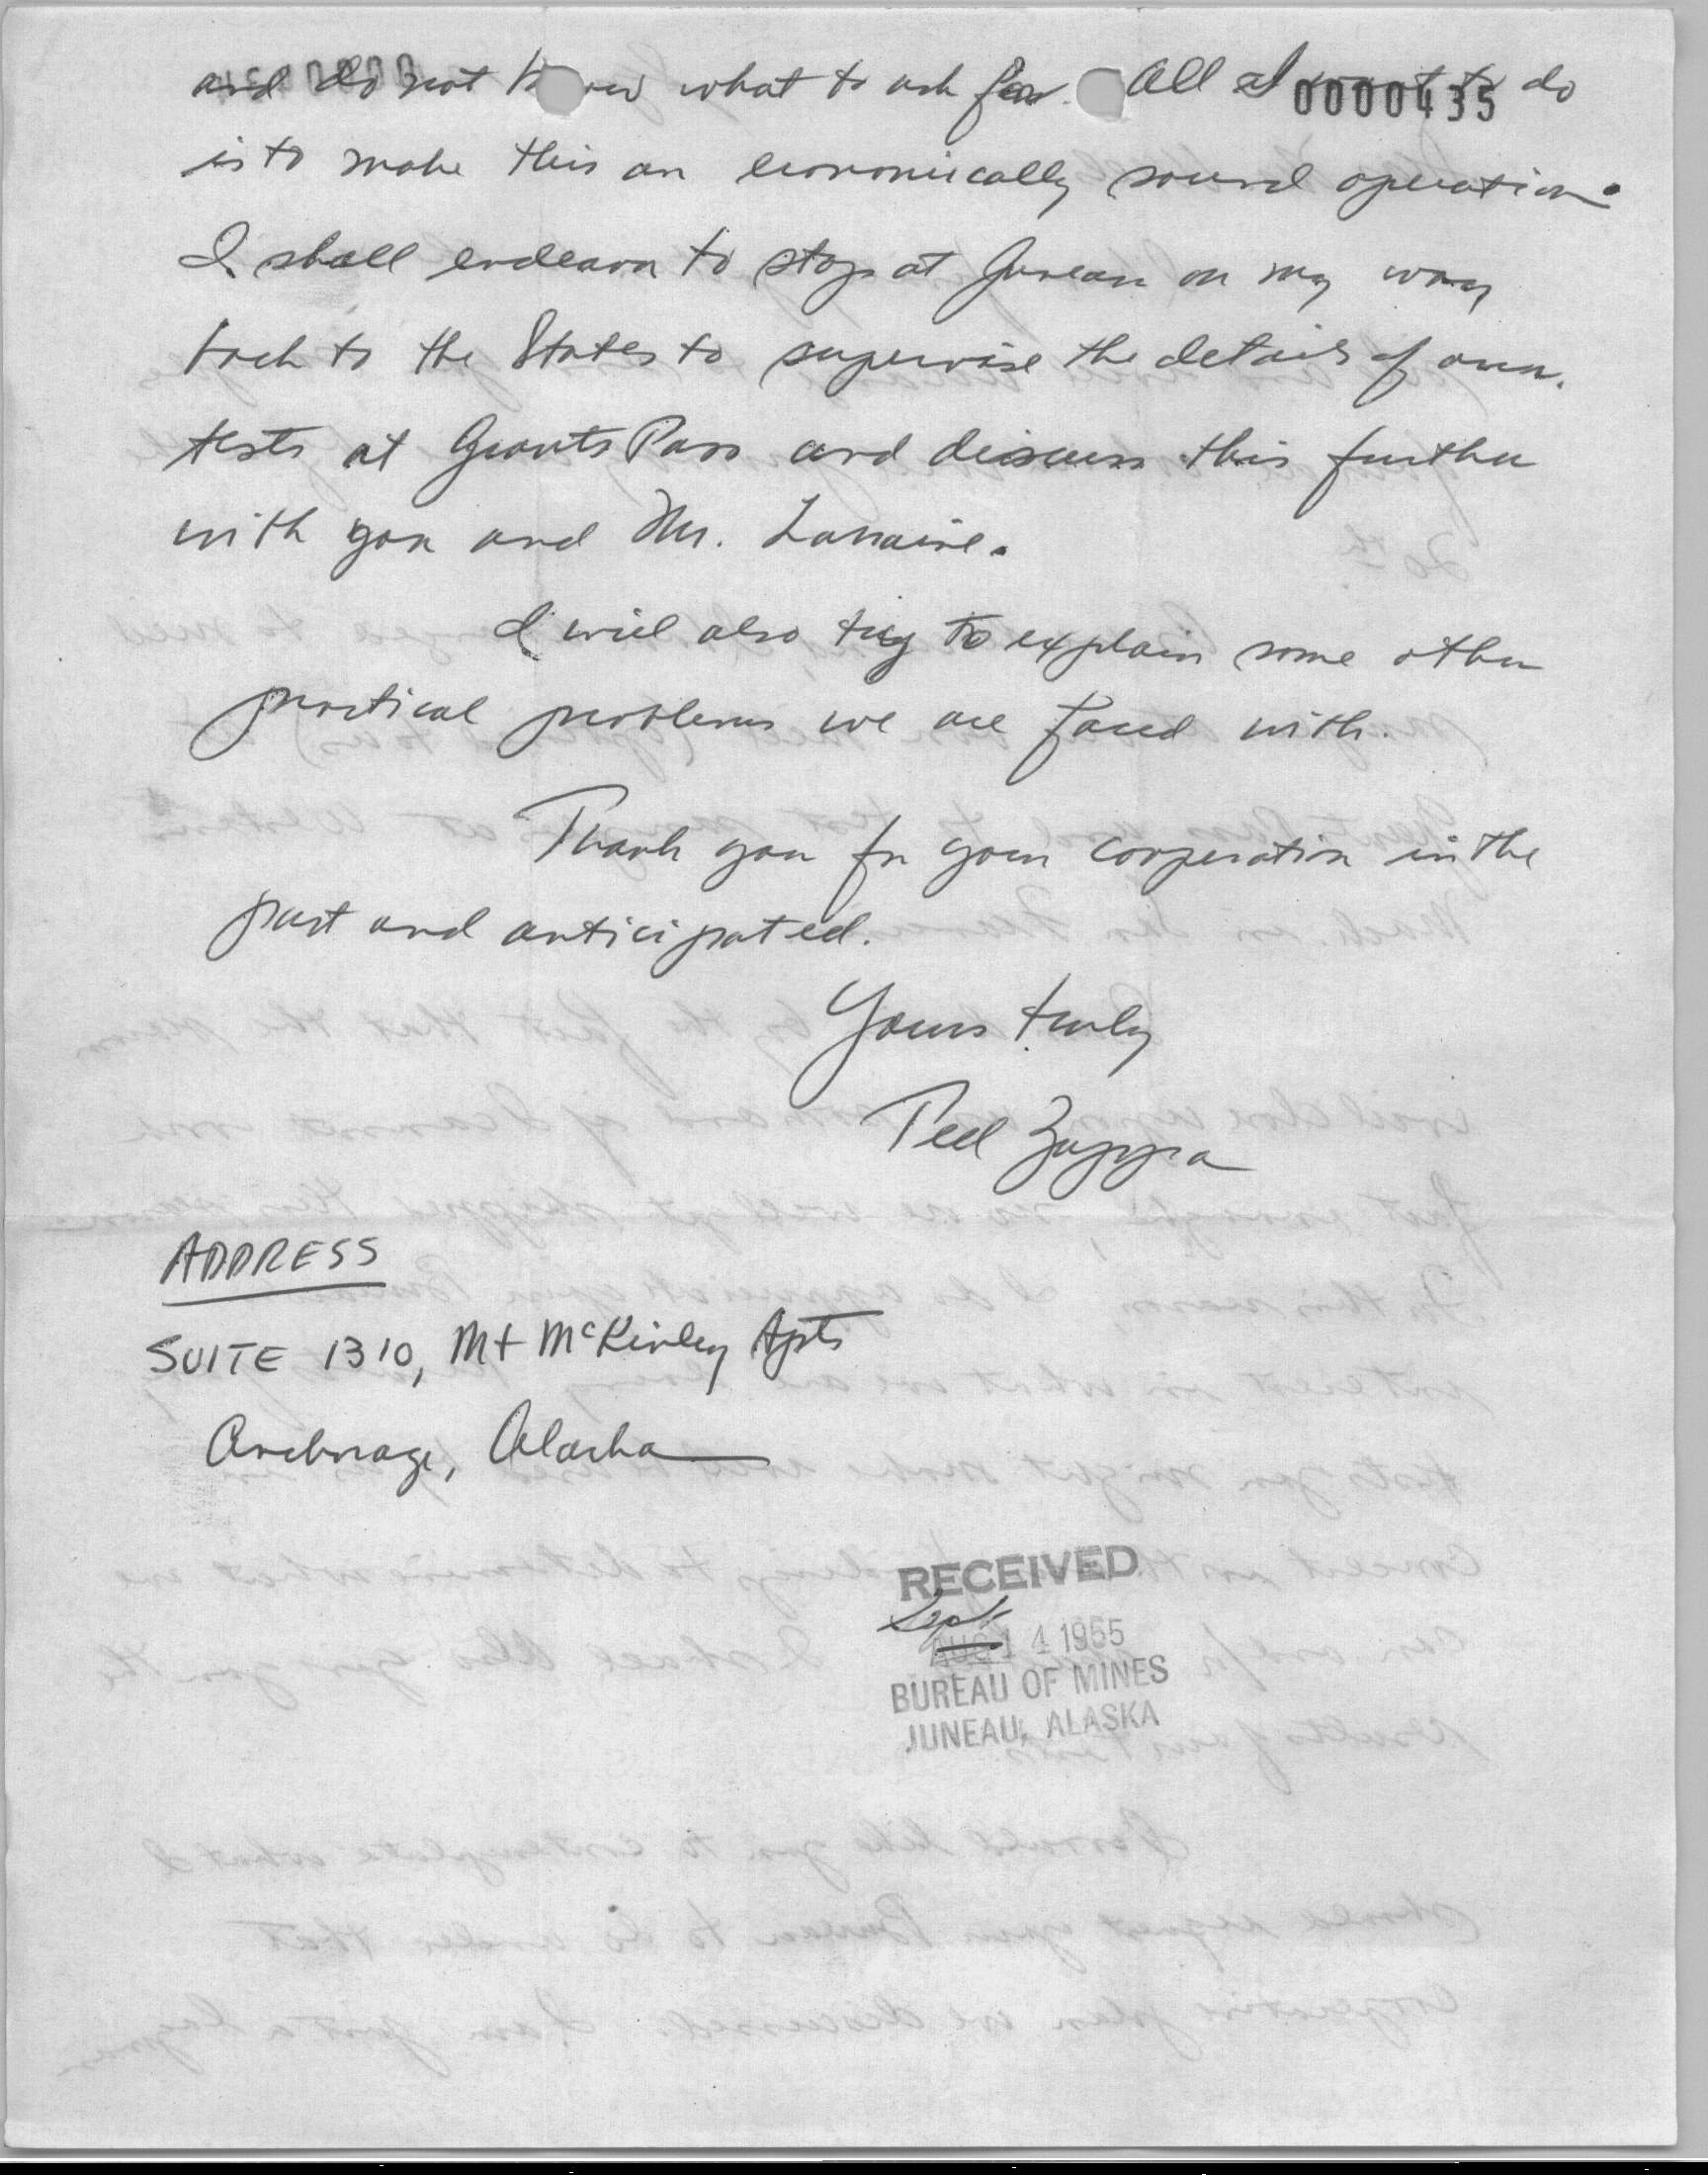 and do not know what to ask for. All I want to do
0000435
is to make this an economically sound operation.
I shall endeavor to stop at Juneau on my way
back to the States to supervise the details of our
tests at Grants Pass and discuss this further
with you and Mr. Lorraine.
I will also try to explain some other
practical problems we are faced with.
Thank you for your cooperation in the
past and anticipated.
Yours truly
Ted Zuppa
ADDRESS
SUITE 1310, Mt McKinley Apts
Anchorage, Alaska
RECEIVED
Sept
AUG 14 1955
BUREAU OF MINES
JUNEAU, ALASKA